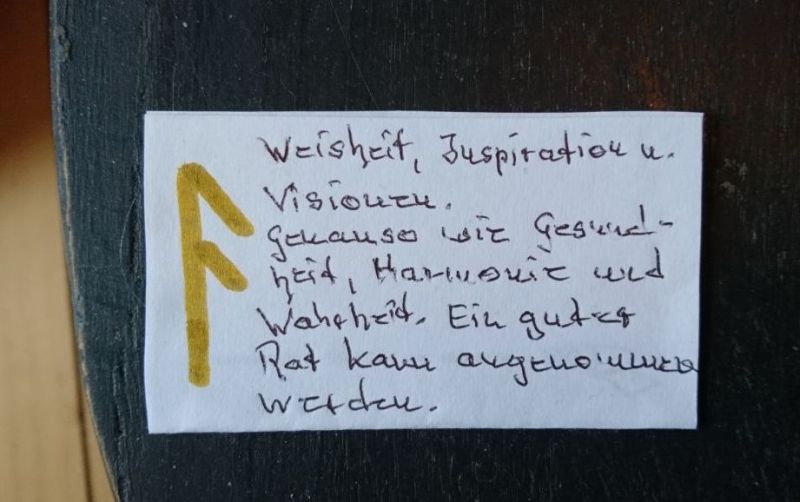 ᚨ
Weisheit, Inspiration u.
Visionen.
Genauso wie Gesund-
heit, Harmonie und
Wahrheit. Ein guter
Rat kann angenommen
werden.